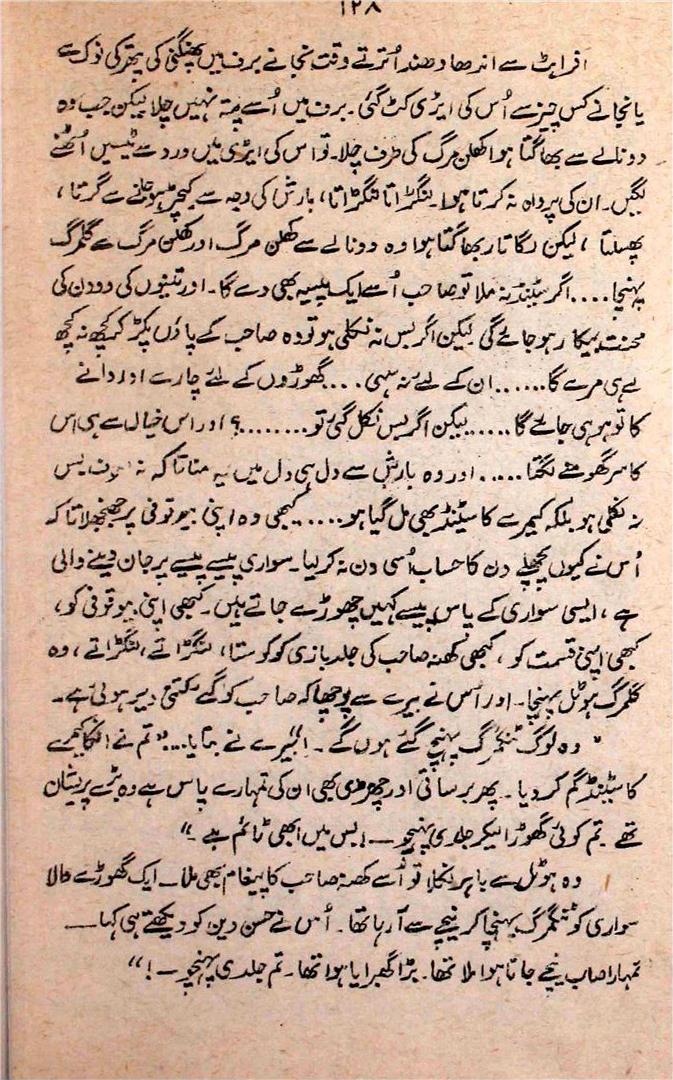 ۱۲۸
افراہٹ سے اندھا دھند اُترتے وقت نجانے برف میں پھنکی کسی پتھر کی نوک سے
یا نجانے کس چیز سے اُس کی ایڑی کٹ گئی۔ برف میں اُسے پتہ نہیں چلا لیکن جب وہ
دو نالے سے بھاگتا ہوا کھلن مرگ کی طرف چلا۔ تو اس کی ایڑی میں درد سے ٹیسیں اُٹھنے
لگیں۔ ان کی پرواہ نہ کرتا ہوا۔ لنگڑاتا لنگڑاتا، بارش کی وجہ سے کیچڑ ہو جانے سے گرتا،
پھسلتا، لیکن لگاتار بھاگتا ہوا وہ دو نالے سے کھلن مرگ اور کھلن مرگ سے گلمرگ
پہنچا.... اگر سٹینڈ نہ ملا تو صاحب اُسے ایک پیسہ بھی نہ دے گا۔ اور تینوں کی دو دن کی
محنت بیکار ہو جائے گی لیکن اگر بس نہ نکلی ہو تو وہ صاحب کے پاؤں پکڑ کر کچھ نہ کچھ
لے ہی مرے گا...... ان کے لئے نہ سہی.... گھوڑوں کے لئے چارے اور دانے
کا تو ہو ہی جائے گا...... لیکن اگر بس نکل گئی تو........؟ اور اس خیال سے ہی اس
کا سر گھومنے لگتا..... اور وہ بارش سے دل ہی دل میں یہ مناتا کہ نہ صرف بس
نہ نکلی ہو بلکہ کیمرے کا سٹینڈ بھی مل گیا ہو...... کبھی وہ اپنی بیوقوفی پر جھنجھلاتا کہ
اُس نے کیوں پچھلے دن کا حساب اُسی دن نہ کر لیا۔ سواری پیسے پیسے پر جان دینے والی
ہے، ایسی سواری کے پاس پیسے کہیں چھوڑے جاتے ہیں۔ کبھی اپنی بیوقوفی کو،
کبھی اپنی قسمت کو، کبھی کھنہ صاحب کی جلد بازی کو کوستا، لنگڑاتے، لنگڑاتے، وہ
گلمرگ ہوٹل پہنچا۔ اور اس نے بیرے سے پوچھا کہ صاحب کو گئے کتنی دیر ہوئی ہے۔
"وہ لوگ ٹنگمرگ پہنچ گئے ہوں گے۔" بیرے نے بتایا..." تم نے انکا کیمرے
کا سٹینڈ گم کر دیا۔ پھر برساتی اور چھڑی بھی ان کی تمہارے پاس ہے وہ بڑے پریشان
تھے۔ تم کوئی گھوڑا لیکر جلدی پہنچو — بس میں ابھی ٹائم ہے۔"
وہ ہوٹل سے باہر نکلا تو اُسے کھنہ صاحب کا پیغام بھی ملا — ایک گھوڑے والا
سواری کو ٹنگمرگ پہنچا کر نیچے سے آ رہا تھا۔ اُس نے حسن دین کو دیکھتے ہی کہا —
تمہارا صاب نیچے جاتا ہوا ملا تھا۔ بڑا گھبرایا ہوا تھا۔ تم جلدی پہنچو — !"